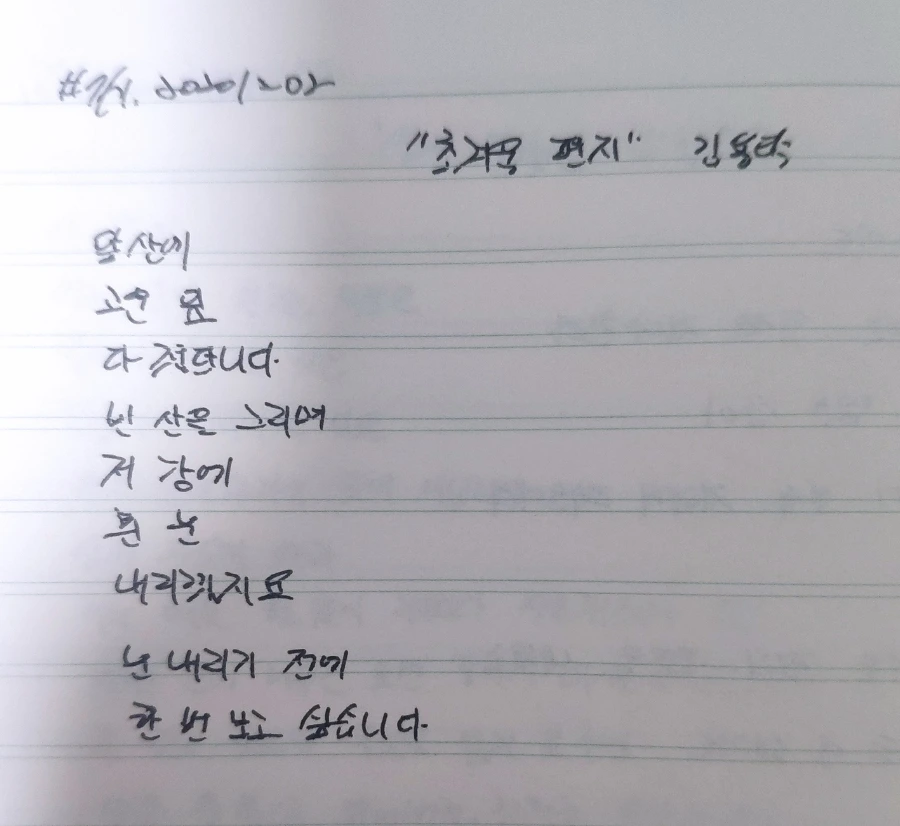 #필사. 20201202
"초겨울 편지" 김용택
앞산에
고운 잎
다 졌답니다.
빈 산을 그리며
저 강에
흰 눈
내리겠지요
눈 내리기 전에
한 번 보고 싶습니다.